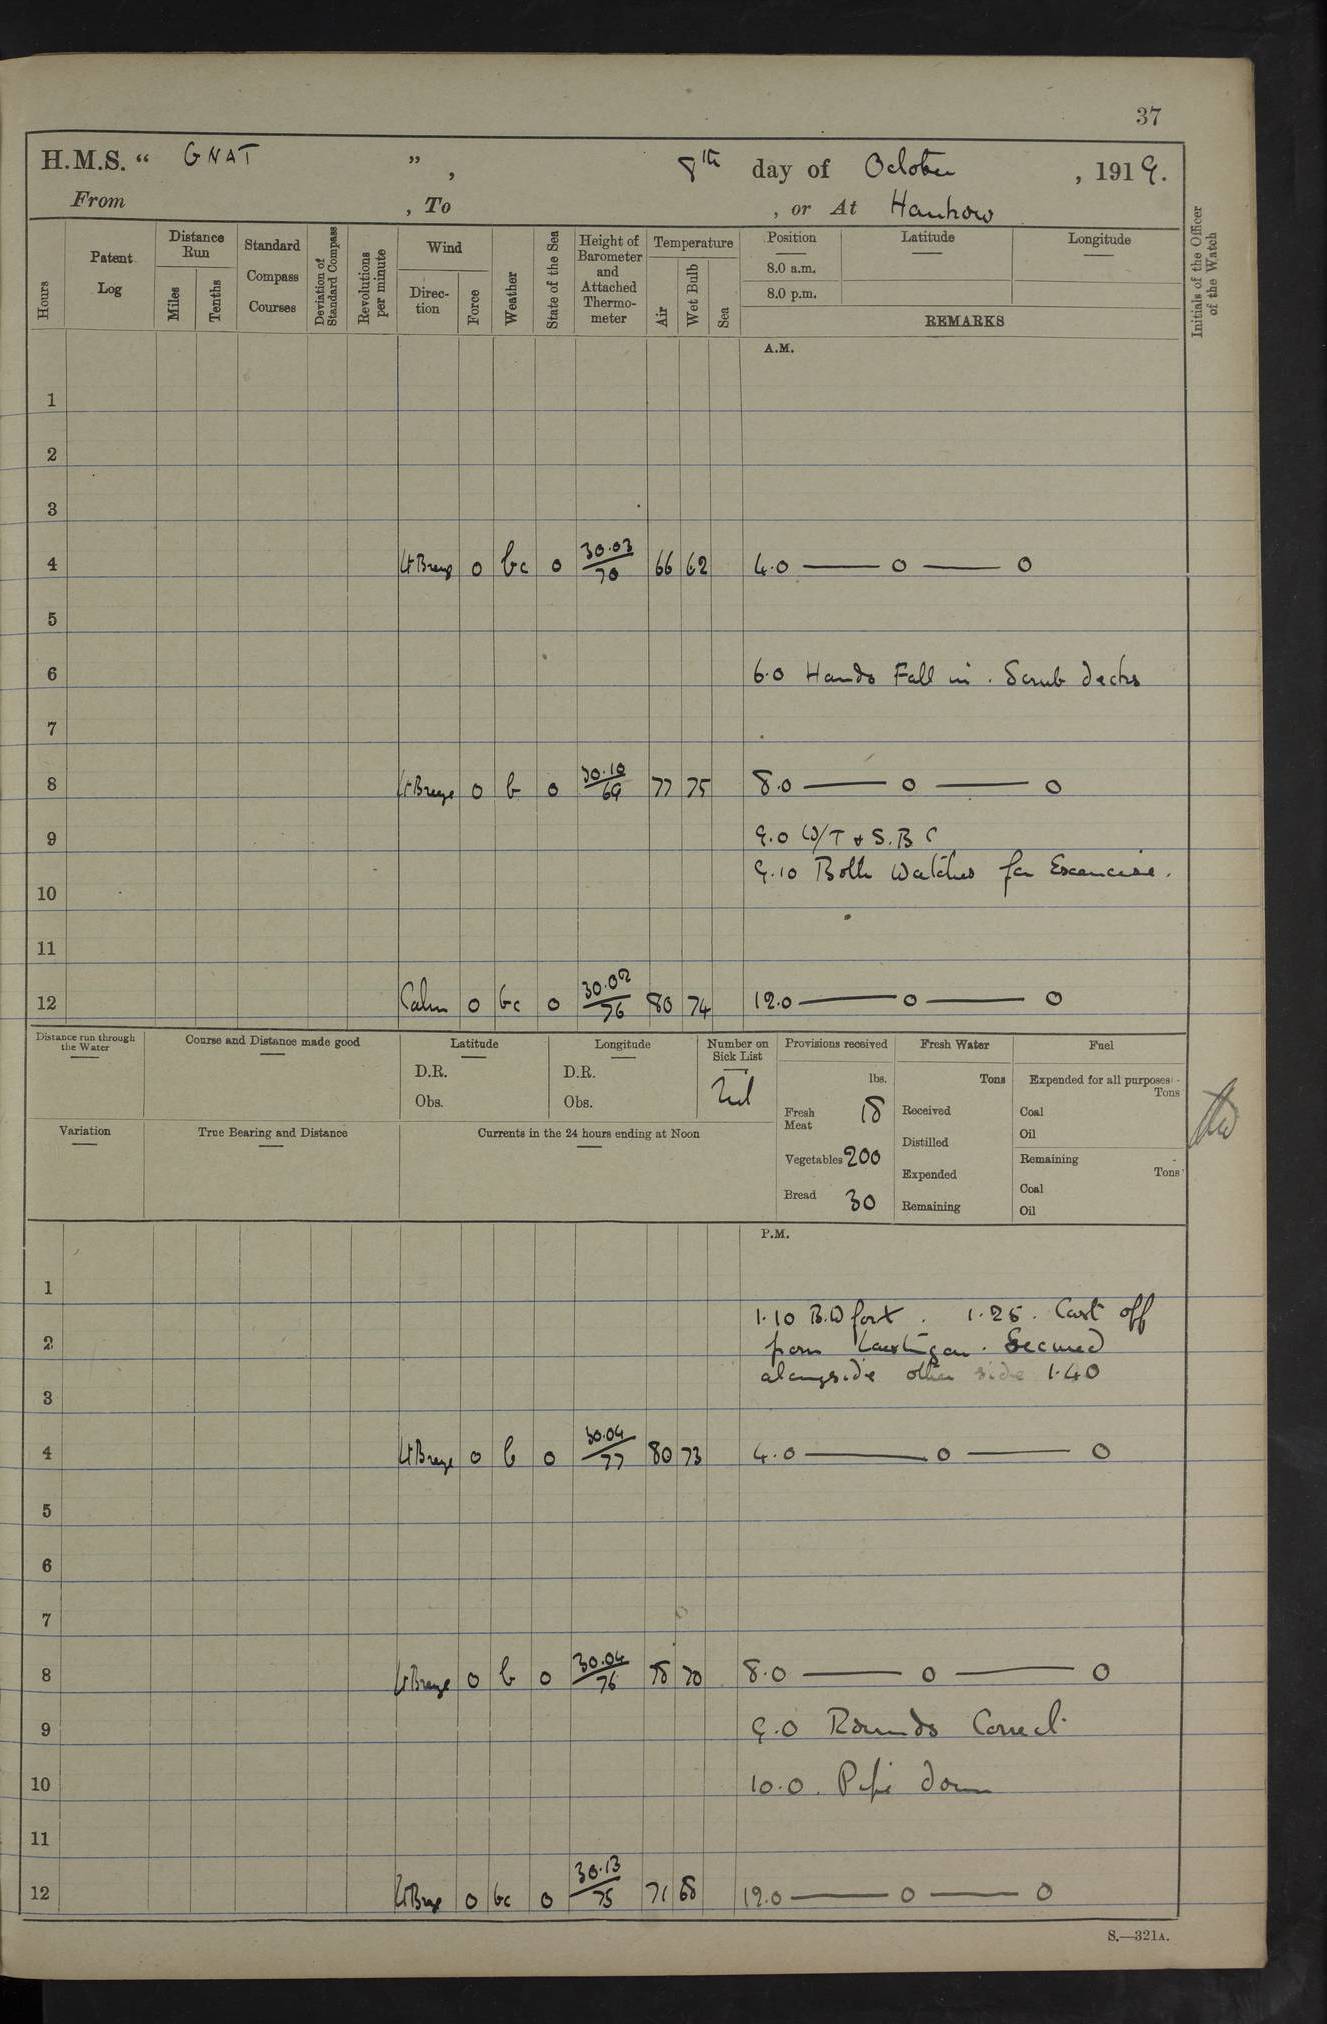 37
H.M.S. “ GNAT ”, 8th day of October, 1919.
From , To , or At Hankow
Hours
Patent Log
Distance Run
Miles
Tenths
Standard Compass Courses
Deviation of Standard Compass
Revolutions per minute
Wind
Direction
Force
Weather
State of the Sea
Height of Barometer and Attached Thermometer
Temperature
Air
Wet Bulb
Sea
Position Latitude Longitude
8.0 a.m.
8.0 p.m.
REMARKS
Initials of the Officer of the Watch
A.M.
1
2
3
4 Lt Breeze 0 bc 0 30.03/70 66 62 4.0 —— 0 —— 0
5
6 6.0 Hands Fall in. Scrub decks
7
8 Lt Breeze 0 b 0 30.10/69 77 75 8.0 —— 0 —— 0
9 9.0 W/T & S.B C
9.10 Both Watches for Excencise.
10
11
12 Calm 0 bc 0 30.02/76 80 74 12.0 —— 0 —— 0
Distance run through the Water
Course and Distance made good
Latitude
D.R.
Obs.
Longitude
D.R.
Obs.
Number on Sick List
Nil
Provisions received
lbs.
Fresh Meat 18
Vegetables 200
Bread 30
Fresh Water
Tons
Received
Distilled
Expended
Remaining
Fuel
Expended for all purposes
Tons
Coal
Oil
Remaining
Tons
Coal
Oil
Variation
True Bearing and Distance
Currents in the 24 hours ending at Noon
P.M.
1
1.10 B.W fort. 1.25. Cast off
2 from . Secured
alongside other side 1.40
3
4 Lt Breeze 0 b 0 30.04/77 80 73 4.0 —— 0 —— 0
5
6
7
8 Lt Breeze 0 b 0 30.04/76 78 70 8.0 —— 0 —— 0
9 9.0 Rounds Correct.
10 10.0. Pipe down
11
12 Lt Breeze 0 bc 0 30.13/75 71 68 12.0 —— 0 —— 0
S.—321A.